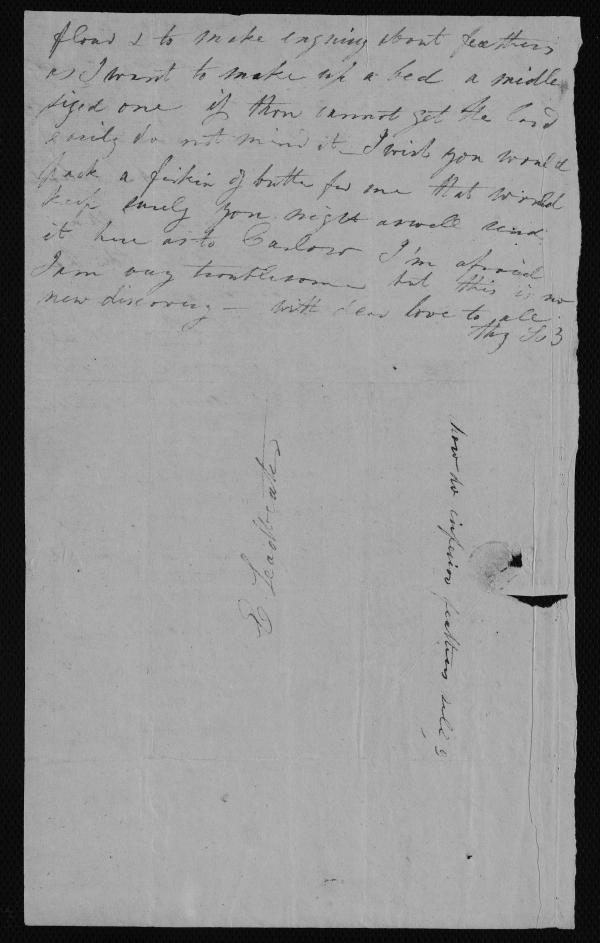 flour & to make enquiry about feathers
as I want to make up a bed a midle
sized one if thou cannot get the
easily do not mind it - I wish you would
pack a firkin of butter for me that would
keep surely you might aswell send
it here as to Carlow I'm afraid
I am very troublesome but this is no
new discovery - with dear love to all
thy
how do inferior feathers sell ?
Leadbeater